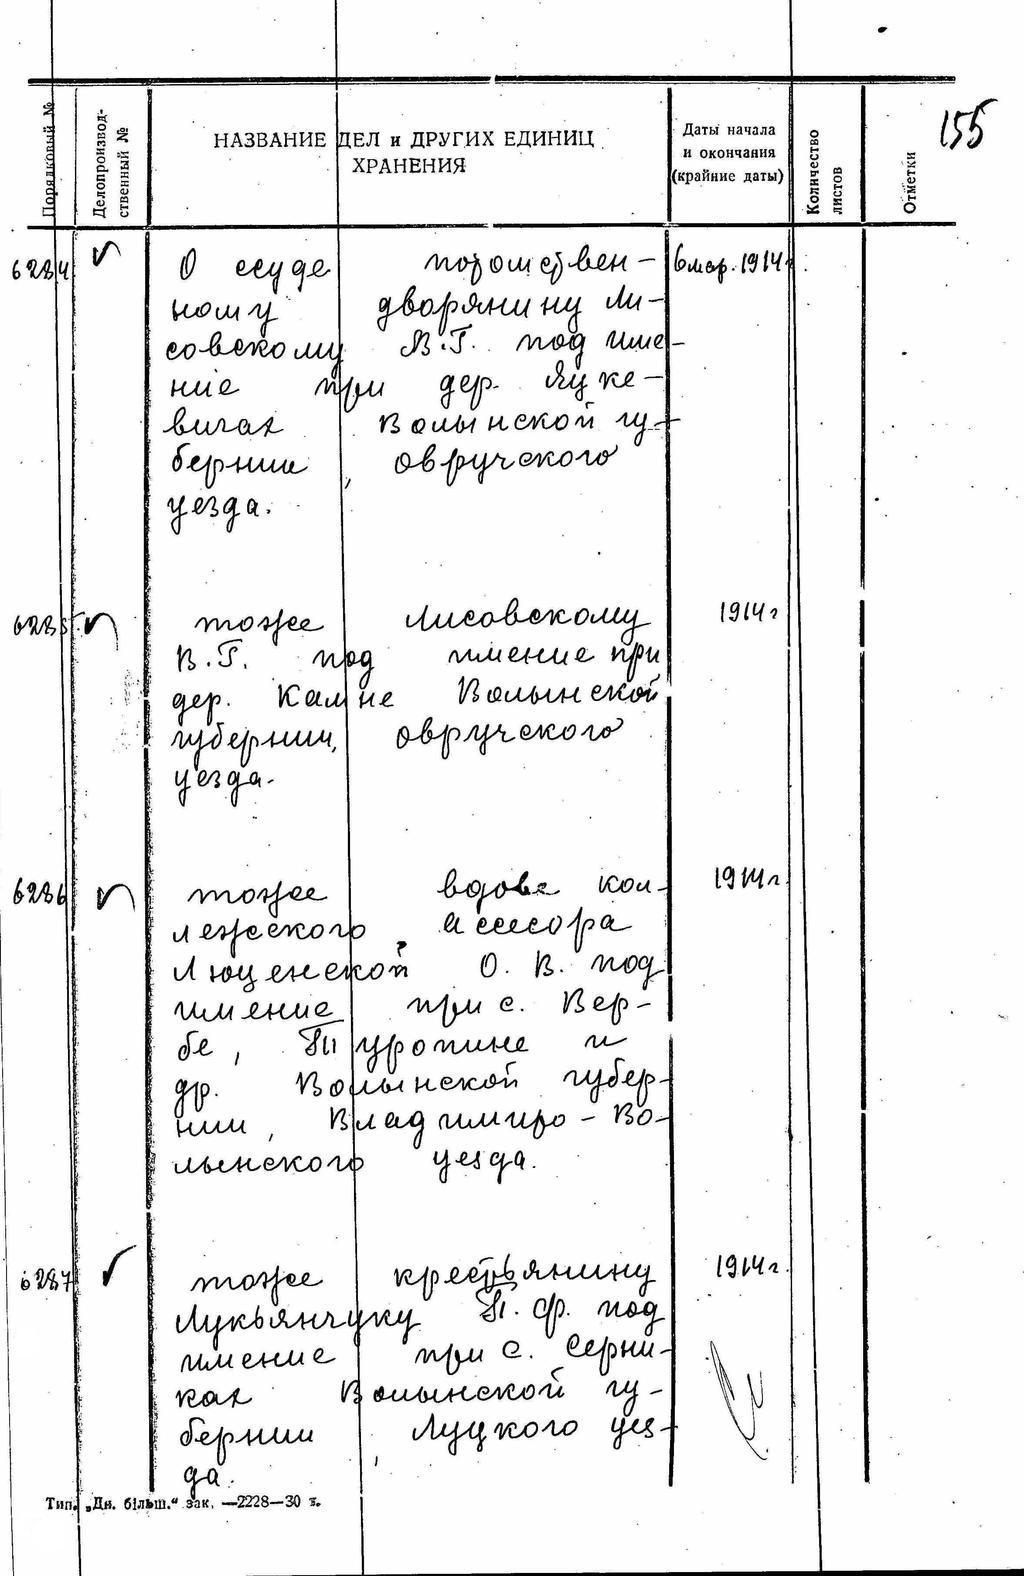 155
Порядковый №
Делопроизвод-
ственный №
НАЗВАНИЕ ДЕЛ и ДРУГИХ ЕДИНИЦ
ХРАНЕНИЯ
Даты начала
и окончания
(крайние даты)
Количество
листов
Отметки
6284 О ссуде потомствен- 6 мар. 1914г.
ному дворянину Ли-
совскому В.Г. под име-
ние при дер. Яцке-
вичах Волынской гу-
бернии, овручского
уезда.
6285 тоже Лисовскому 1914г
В.Г. под имение при
дер. Камне Волынской
губернии, овручского
уезда.
6286 тоже вдове кол- 1914г.
лежского ассесора
Люценской О. В. под
имение при с. Вер-
бе, Туропине и
др. Волынской губер-
нии, Владимиро-Во-
лынского уезда.
6287 тоже крестьянину 1914г.
Лукьянчуку Т. Ф. под
имение при с. Серни-
ках Волынской гу-
бернии, Луцкого уез-
да.
Тип. „Дн. більш.“ зак. —2228—30 г.